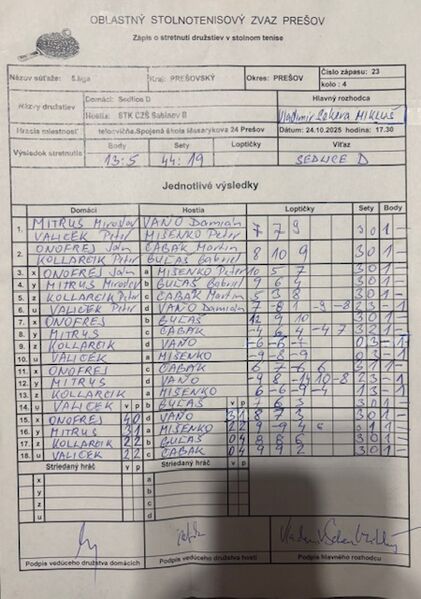 OBLASTNÝ STOLNOTENISOVÝ ZVAZ PREŠOV
Zápis o stretnutí družstiev v stolnom tenise
Názov súťaže: 5.liga Kraj: PREŠOVSKÝ Okres: PREŠOV Číslo zápasu: 23
kolo: 4
Názvy družstiev Domáci: Sedlice D Hlavný rozhodca
Hostia: STK CZŠ Sabinov B Vladimír MIKLUŠ
Hracia miestnosť telocvičňa,Spojená škola Masarykova 24 Prešov Dátum: 24.10.2025 hodina: 17.30
Výsledok stretnutia Body Sety Loptičky Víťaz
13:5 44:19 SEDLICE D
Jednotlivé výsledky
Domáci Hostia Loptičky Sety Body
1. MITRUŠ Miroslav VAŇO Damián 7 7 9 3 0 1 -
VALIČEK Peter MIŠENKO Peter
2. ONOFREJ Ján CABAK Martin 8 10 9 3 0 1 -
KOLLARCIK Peter GUĽAŠ Gabriel
3. x ONOFREJ Ján a MIŠENKO Peter 10 5 7 3 0 1 -
4. y MITRUŠ Miroslav b GUĽAŠ Gabriel 9 6 4 3 0 1 -
5. z KOLLARCIK Peter c CABAK Martin 5 3 8 3 0 1 -
6. u VALIČEK Peter d VAŇO Damián
7. x ONOFREJ b GUĽAŠ 12 9 10 3 0 1 -
8. y MITRUŠ c CABAK -4 6 4 -4 7 3 2 1 -
9. z KOLLARCIK d VAŇO -6 -6 -4 0 3 - 1
10. u VALIČEK a MIŠENKO -9 -8 -9 0 3 - 1
11. x ONOFREJ c CABAK 3 1 1 -
12. y MITRUŠ d VAŇO 2 3 - 1
13. z KOLLARCIK a MIŠENKO -6 -6 9 -4 1 3 - 1
14. u VALIČEK v p b GUĽAŠ v p 7 6 3 3 0 1 -
15. x ONOFREJ 4 0 d VAŇO 3 1 8 7 3 3 0 1 -
16. y MITRUŠ 3 1 a MIŠENKO 2 2 9 -9 4 6 3 1 1 -
17. z KOLLARCIK 2 2 b GUĽAŠ 0 4 8 8 6 3 0 1 -
18. u VALIČEK 2 2 c CABAK 0 4 9 9 2 3 0 1 -
Striedaný hráč v p Striedaný hráč v p
x a
y b
z c
u d
Podpis vedúceho družstva domácich Podpis vedúceho družstva hostí Podpis hlavného rozhodcu